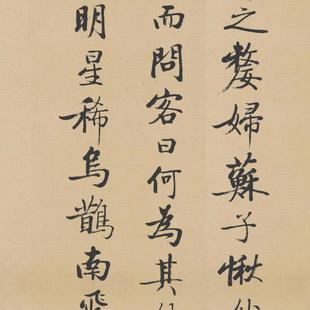 之嫠婦蘇子愀
而問客曰何為其
明星稀烏鵲南飛